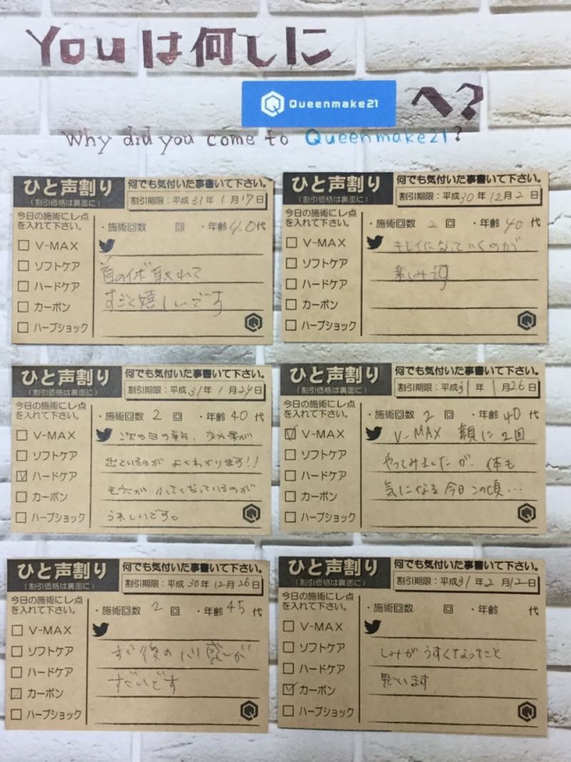 Youは何しに
Queenmake21 へ?
Why did you come to Queenmake21?
ひと声割り
(割引価格は裏面に)
何でも気付いた事書いて下さい。
割引期限:平成31年1月17日
今日の施術にレ点
を入れて下さい。
・施術回数 回 ・年齢40代
V-MAX
ソフトケア
ハードケア
カーボン
ハーブショック
首のイボ取れて
すごく嬉しいです
ひと声割り
(割引価格は裏面に)
何でも気付いた事書いて下さい。
割引期限:平成30年12月2日
今日の施術にレ点
を入れて下さい。
・施術回数 2 回 ・年齢40代
V-MAX
ソフトケア
ハードケア
カーボン
ハーブショック
キレイになっていくのが
楽しみです
ひと声割り
(割引価格は裏面に)
何でも気付いた事書いて下さい。
割引期限:平成31年1月29日
今日の施術にレ点
を入れて下さい。
・施術回数 2 回 ・年齢40代
V-MAX
ソフトケア
ハードケア
カーボン
ハーブショック
次の日の朝、
出ているのがよくわかります!!
小さくなっているのが
うれしいです。
ひと声割り
(割引価格は裏面に)
何でも気付いた事書いて下さい。
割引期限:平成31年1月26日
今日の施術にレ点
を入れて下さい。
・施術回数 2 回 ・年齢40代
V-MAX
ソフトケア
ハードケア
カーボン
ハーブショック
V-MAX 額に2回
やってみましたが、体も
気になる今日この頃…
ひと声割り
(割引価格は裏面に)
何でも気付いた事書いて下さい。
割引期限:平成30年12月26日
今日の施術にレ点
を入れて下さい。
・施術回数 2 回 ・年齢45代
V-MAX
ソフトケア
ハードケア
カーボン
ハーブショック
後のハリ感が
すごいです
ひと声割り
(割引価格は裏面に)
何でも気付いた事書いて下さい。
割引期限:平成31年2月2日
今日の施術にレ点
を入れて下さい。
・施術回数 回 ・年齢 代
V-MAX
ソフトケア
ハードケア
カーボン
ハーブショック
しみがうすくなってこと
思います